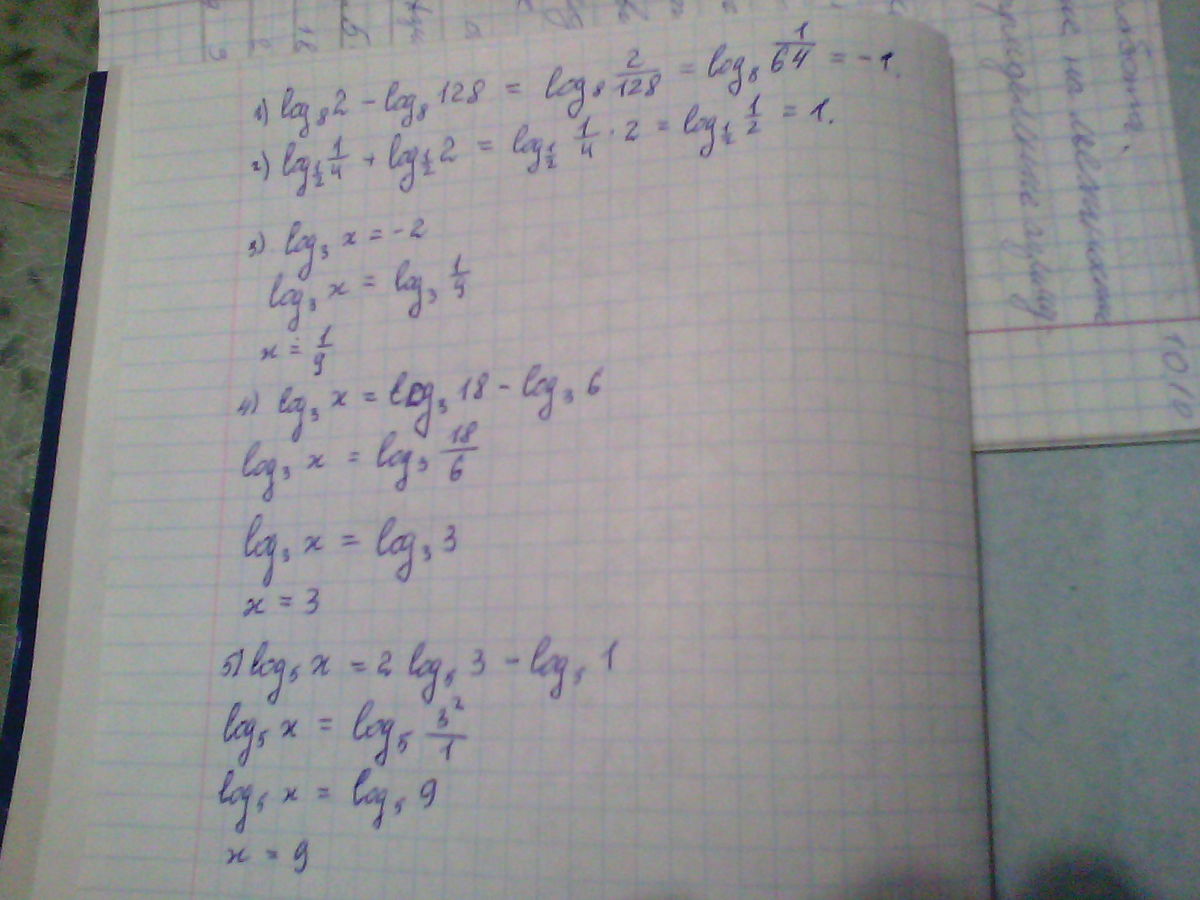 1) log₈2 - log₈128 = log₈ 2/128 = log₈ 1/64 = -1.
2) log½ 1/4 + log½ 2 = log½ 1/4 · 2 = log½ 1/2 = 1.
3) log₃ x = -2
log₃ x = log₃ 1/9
x = 1/9
4) log₃ x = log₃ 18 - log₃ 6
log₃ x = log₃ 18/6
log₃ x = log₃ 3
x = 3
5) log₅ x = 2 log₅ 3 - log₅ 1
log₅ x = log₅ 3²/1
log₅ x = log₅ 9
x = 9